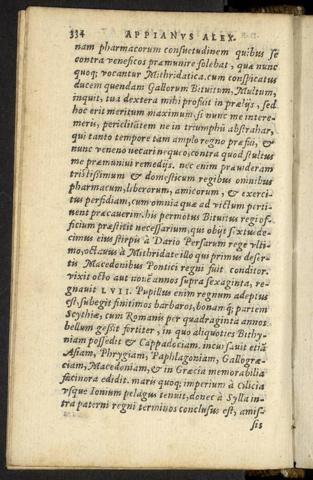 334 APPIANVS ALEX.
nam pharmacorum consuetudinem quibus se
contra veneficos præmunire solebat, quæ nunc
quoq; vocantur Mithridatica. cum conspicatus
ducem quendam Gallorum Bituitum, Multum,
inquit, tua dextera mihi profuit in prælijs, sed
hoc erit meritum maximum, si nunc me intere-
meris, periclitātem ne in triumphū abstrahar,
qui tanto tempore tam amplo regno præfui, &
nunc veneno necari nequeo, contra quod stultus
me præmuniui remedijs. nec enim præuideram
tristissimum & domesticum regibus omnibus
pharmacum, liberorum, amicorum, & exerci-
tus perfidiam, cum omnia quæ ad victum perti-
nent præcauerim. his permotus Bituitus regi of-
ficium præstitit necessarium, qui obijt sextus de-
cimus eius stirpis à Dario Persarum rege vlti-
mo, octauus à Mithridate illo qui primus deser-
tis Macedonibus Pontici regni fuit conditor.
vixit octo aut nouē annos supra sexaginta, re-
gnauit LVII. Pupillus enim regnum adeptus
est, subegit finitimos barbaros, bonamq; partem
Scythiæ, cum Romanis per quadraginta annos
bellum gessit fortiter, in quo aliquoties Bithy-
niam possedit & Cappadociam. incursauit etiā
Asiam, Phrygiam, Paphlagoniam, Gallogræ-
ciam, Macedoniam, & in Græcia memorabilia
facinora edidit. maris quoq; imperium à Cilicia
vsque Ionium pelagus tenuit, donec à Sylla in-
tra paterni regni terminos conclusus est, amis-
sis